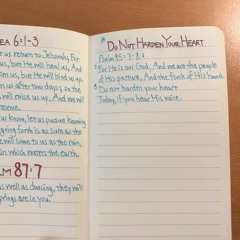 EA 6:1-3
us return to Jehovah; For
us, but He will heal us, And
en us, but He will bind us up.
us after two days; on the
will raise us up, And we will
presence.
us know, let us pursue knowing
going forth is as sure as the
will come to us as the rain,
rain which waters the earth.
LM 87:7
as well as dancing, they will
springs are in you."
DO NOT HARDEN YOUR HEART
Psalm 95:7-8:
7 For He is our God, And we are the people
of His pasture, And the flock of His hand.
8 Do not harden your heart
Today, if you hear His voice.